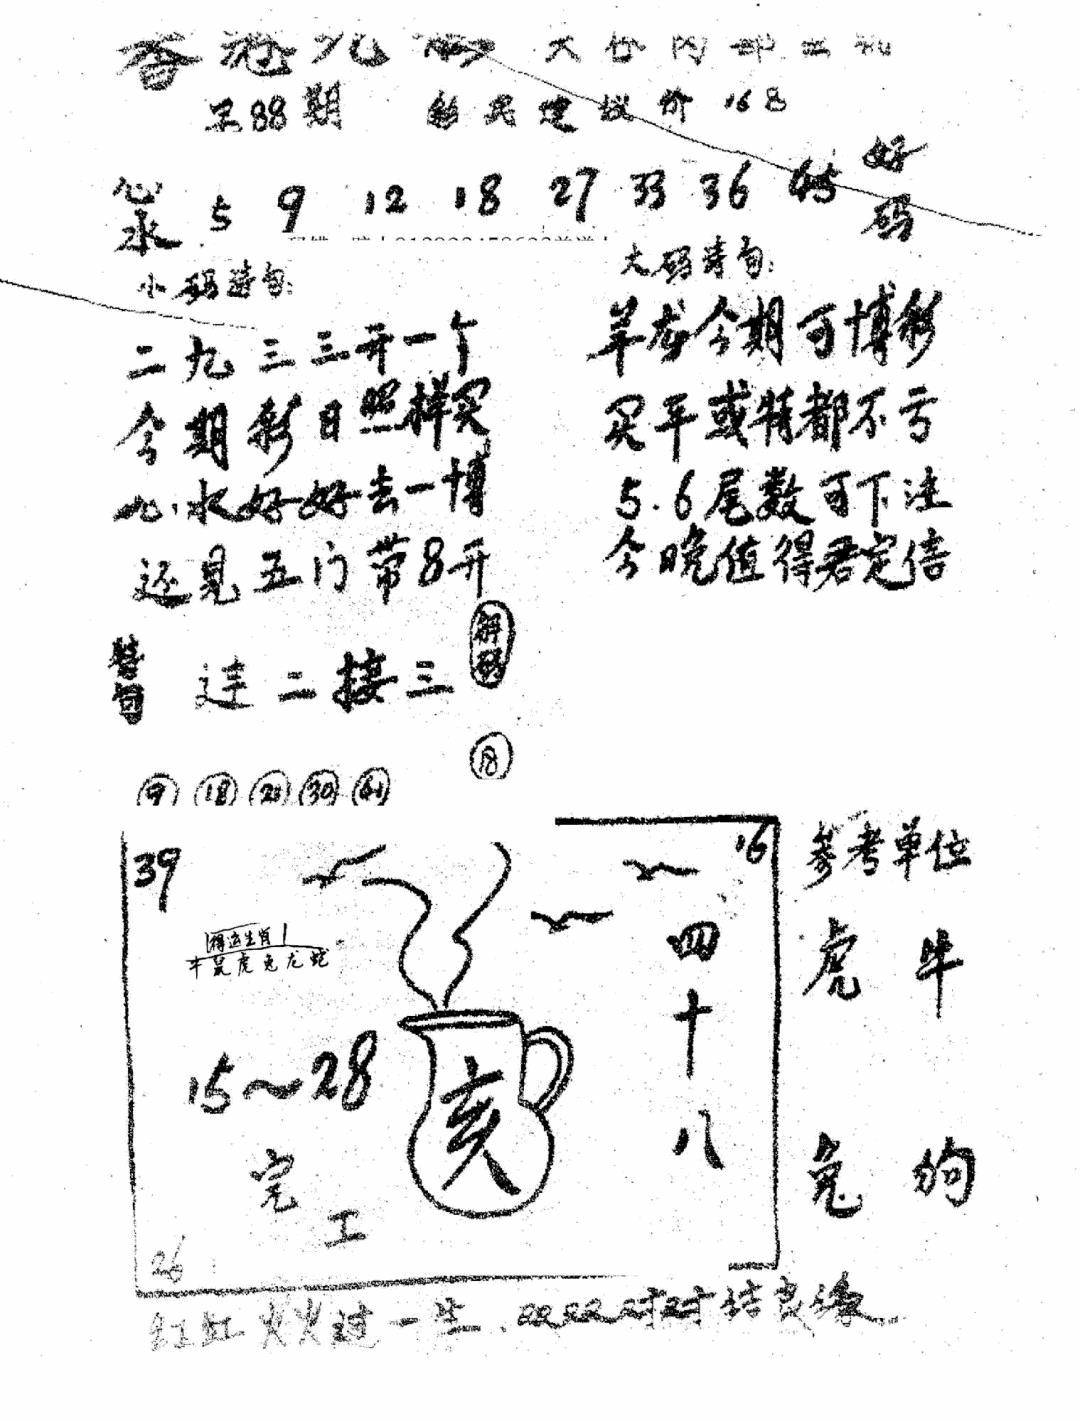 香港九
88期 彩民建议价168
心水 5 9 12 18 27 33 36 45 好码
小码诗句:
二九三三开一个
今期彩日照样买
九水好好去一博
还见五门带8开
大码诗句:
羊龙今期可博彩
买平或特都不亏
5.6尾数可下注
今晚值得君定倍
连二接三
解码
18
9 18 30
39
16
得运生肖
牛鼠虎兔龙蛇
15～28
完工
亥
四十八
26
参考单位
虎 牛
兔 狗
红红火火过一生.双双对对结良缘.